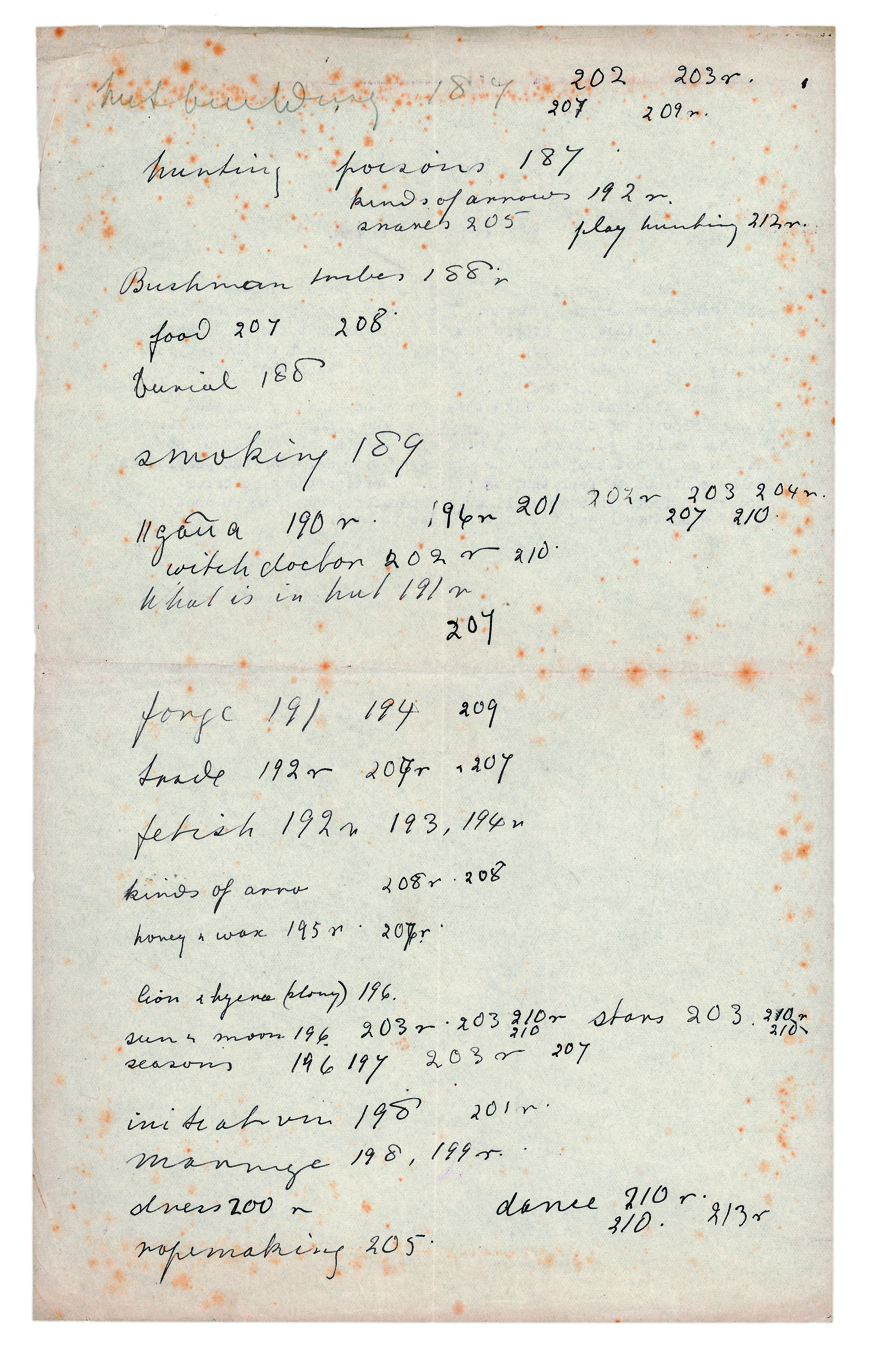 hut building 187 202 203r.
207 209r.
hunting poisons 187
kinds of arrows 192 r.
snares 205 play hunting 212r.
Bushman tribes 188 r
food 207 208
burial 188
smoking 189
||gaũa 190 r. 196r 201 202r 203 204r.
207 210.
witch doctor 202 r 210.
What is in hut 191 r
207
forge 191 194 209
trade 192 r 207r 207
fetish 192 r 193, 194r
kinds of arro 208r. 208
honey & wax 195 r.
lion & hyena (story) 196.
sun & moon 196. 203r. 203 210r stars 203. 210r
210 210
seasons 196 197 203 r 207
initiation 198 201r.
marriage 198, 199r.
dress 200 r dance 210 r.
210. 213r
ropemaking 205.